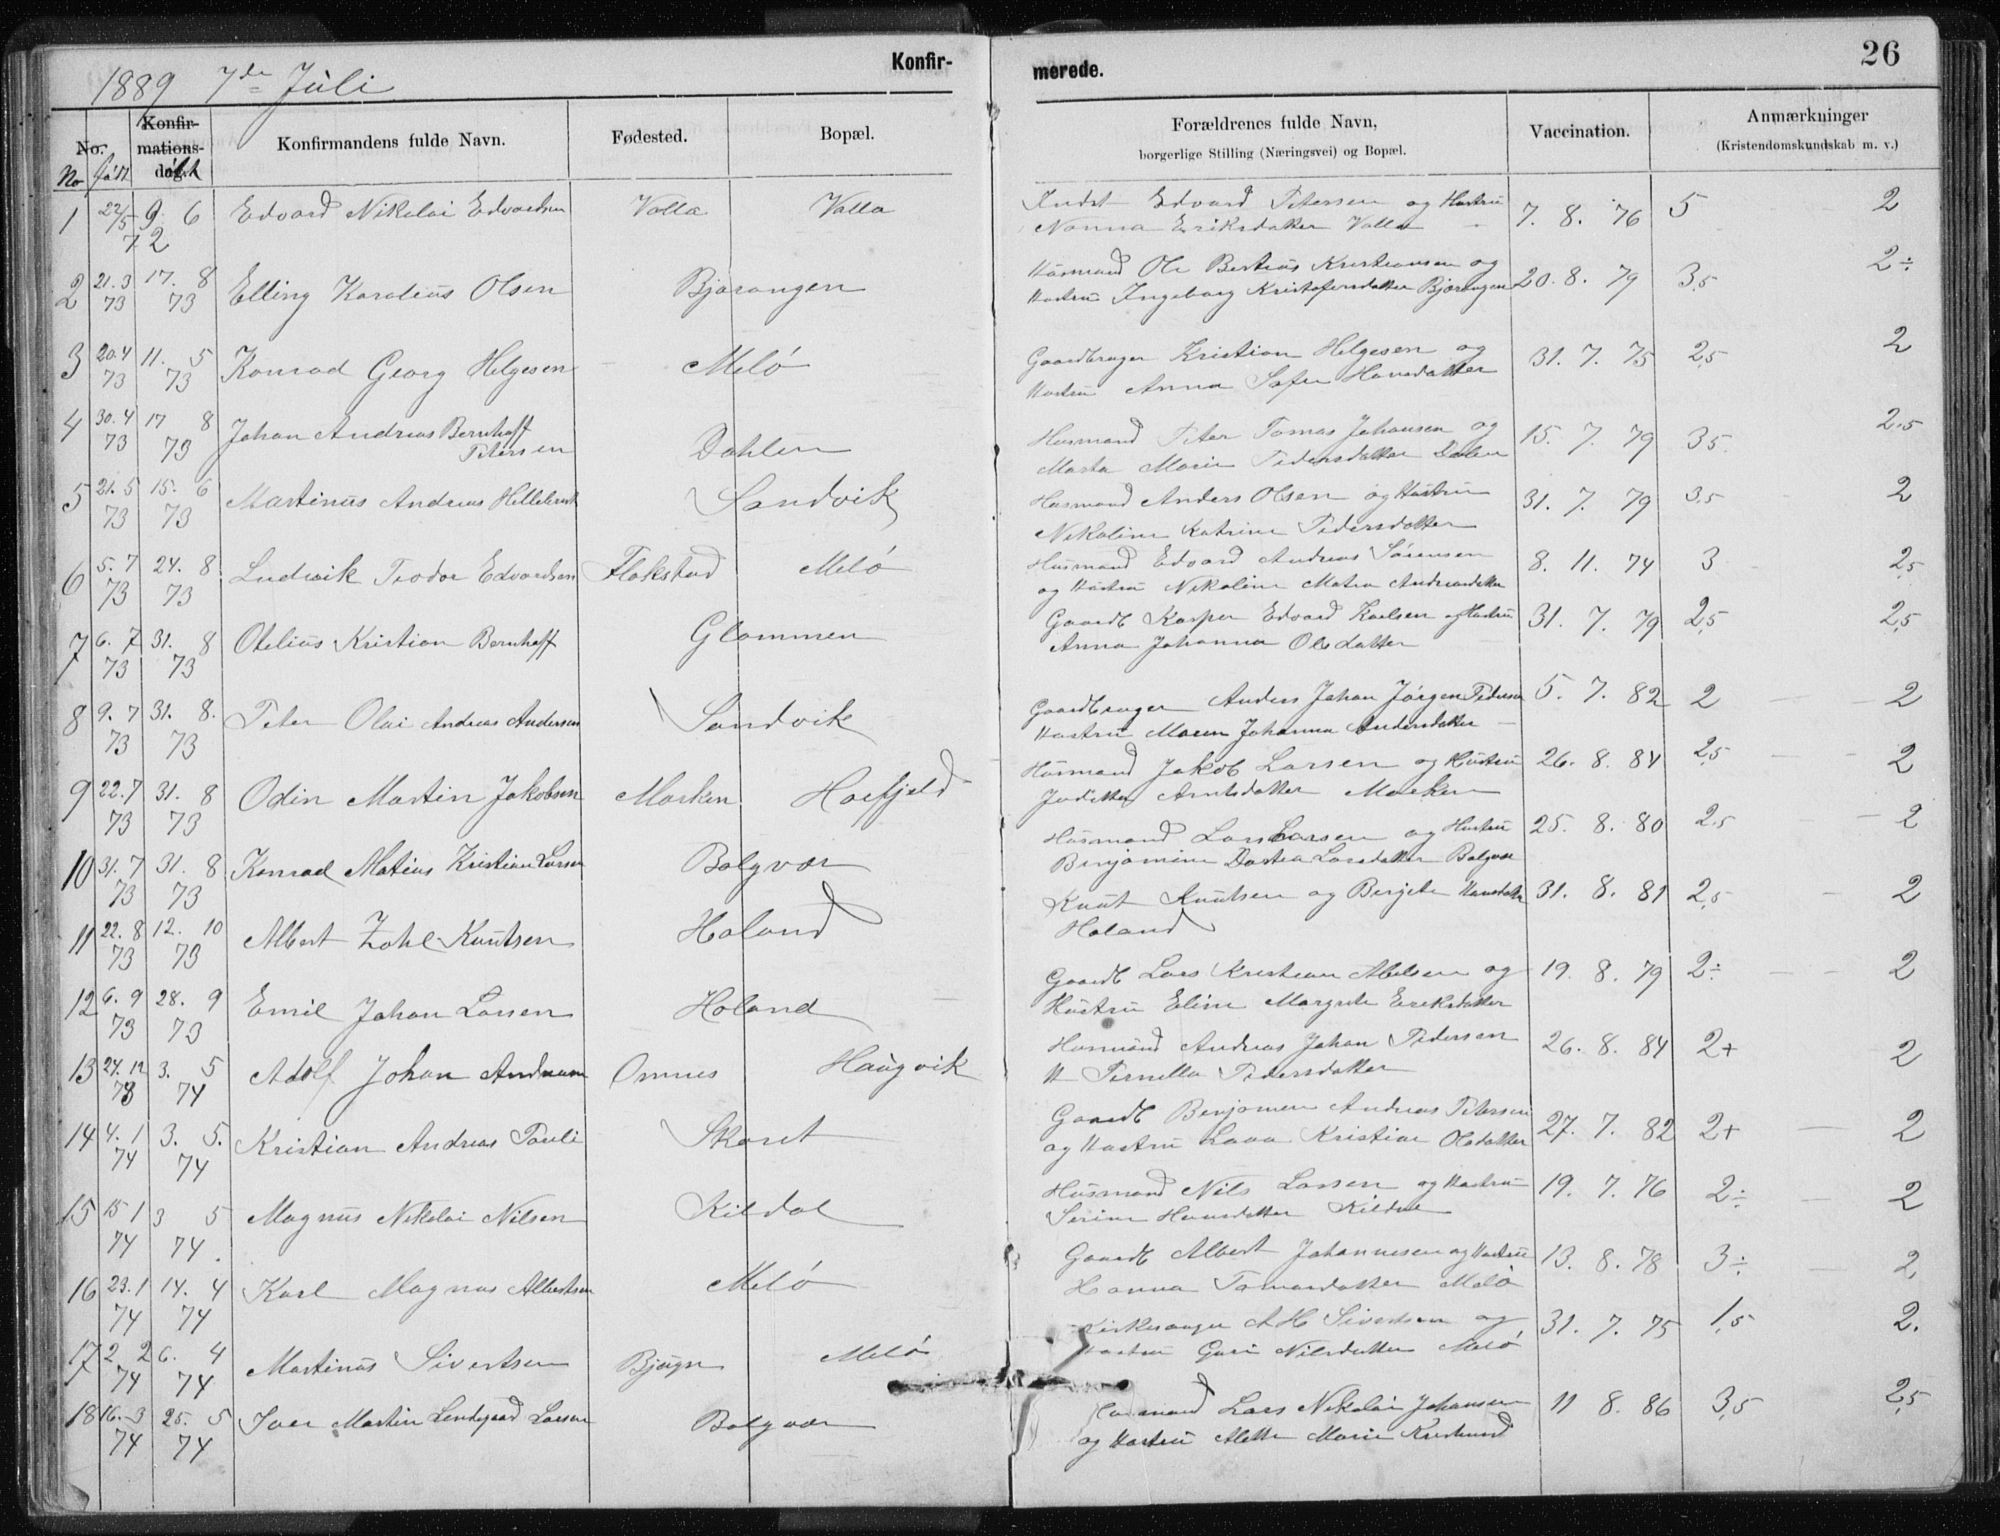 Konfir-
merede.
26
1889 7de Juli
No. Konfir-
mations-
dag. Konfirmandens fulde Navn. Fødested. Bopæl. Forældrenes fulde Navn,
borgerlige Stilling (Næringsvei) og Bopæl. Vaccination. Anmærkninger
(Kristendomskundskab m. v.)
No
1 22/5 72 9. 6 Edvard Nikolai Edvardsen Valla Valla Indst Edvard Petersen og Hustru 7. 8. 76 5 2
Nanna Eriksdatter Valla
2 21.3 73 17. 8 73 Elling Karolius Olsen Bjærangen Husmand Ole Bertius Kristiansen og 20. 8. 79 3,5 2÷
Hustru Ingeborg Kristofersdatter Bjærangen
3 20.4 73 11. 5 73 Konrad Georg Helgesen Melö Gaardbruger Kristian Helgesen og 31. 7. 75 2,5 2
Hustru Anna Hansdatter
4 30.4 73 17 8 73 Johan Andreas Bernhoff
Petersen Dahlen Husmand Peter Tomas Johansen og 15. 7. 79 3,5 2,5
Marta Marie Pedersdatter Dalen
5 21.5 73 15. 6 73 Martinus Andreas Sandvik Husmand Anders Olsen og Hustru 31. 7. 79 3,5 2
Nikoline Katrine Pedersdatter
6 5.7 73 24. 8 73 Ludvik Teodor Edvardsen Flakstad Melö Husmand Edvard Andreas Sörensen 8. 11. 74 3 2,5
og Hustru Nikoline
7 6.7 73 31. 8 73 Otelius Kristian Bernhoff Glommen Gaardb Kasper Edvard Karlsen og Hustru 31. 7. 79 2,5 2,5
Anna Johanna Olsdatter
8 9.7 73 31. 8. 73 Peter Olai Andreas Andersen Sandvik Gaardbruger Anders Johan Jörgen Pedersen 5. 7. 82 2 2
Hustru Maren Johanna Andersdatter
9 22.7 73 31. 8 73 Odin Martin Jakobsen Marken Husmand Jakob Larsen og Hustru 26. 8. 84 2,5 2
Arntsdatter
10 31.7 73 31. 8 73 Konrad Matius Kristian Larsen Bolgvær Husmand Lars Larsen og Hustru 25. 8. 80 2,5 2
Benjamine Dortea Larsdatter Bolgvær
11 22.8 73 12. 10 73 Albert Zahl Knutsen Haland Knut Knutsen og Berjete Hansdatter 31. 8. 81 2,5 2
Haland
12 6.9 73 28. 9 73 Emil Johan Larsen Haland Gaardb Lars Kristian Abelsen og 19. 8. 79 2÷ 2
Hustru Eline Margrete Eriksdatter
13 27.12 73 3. 5 74 Adolf Johan Andreasen Omnes Haugvik Husmand Andreas Johan Pedersen 26. 8. 84 2+ 2
H Pernella Pedersdatter
14 4.1 74 3. 5. 74 Kristian Andreas Pauli Skaret Gaardb Benjamin Andreas Petersen 27. 7. 82 2+ 2
og Hustru Kristine Olsdatter
15 15 1 74 3 5 74. Magnus Nikolai Nilsen Kildal Husmand Nils Larsen og Hustru 19. 7. 76 2÷ 2
Serine Hansdatter Kildal
16 23.1 74 14. 4 74 Karl Magnus Albertsen Melö Gaardb Albert Johannesen og Hustru 13. 8. 78 3÷ 2
Hanna Tomasdatter Melö
17 2 2 74 6. 4 74 Martinus Sivertsen Bjugn Melö Kirkesanger A H Sivertsen og 31. 7. 75 1,5 2.
Hustru Guri Nilsdatter Melö
18 16.3 74 25. 5 74 Iver Martin Larsen Bolgvær Husmand Lars Nikolai Johansen 11 8. 86 3,5 2,5
og Hustru Mette Marie